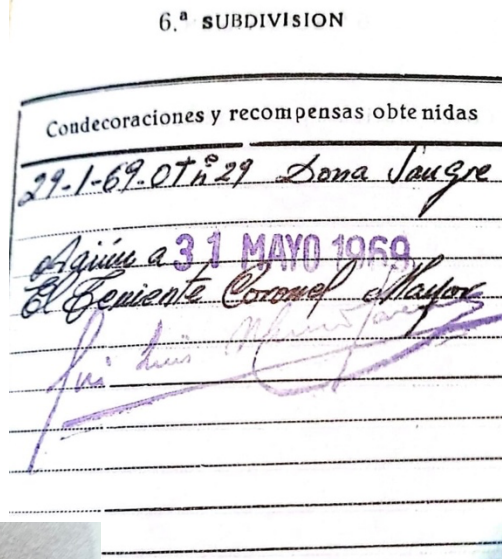 6.ª SUBDIVISION
Condecoraciones y recompensas obtenidas
29-1-69. OT nº 29 Dona Sangre
Aaiún a 31 MAYO 1969
El Teniente Coronel Mayor
José Luis